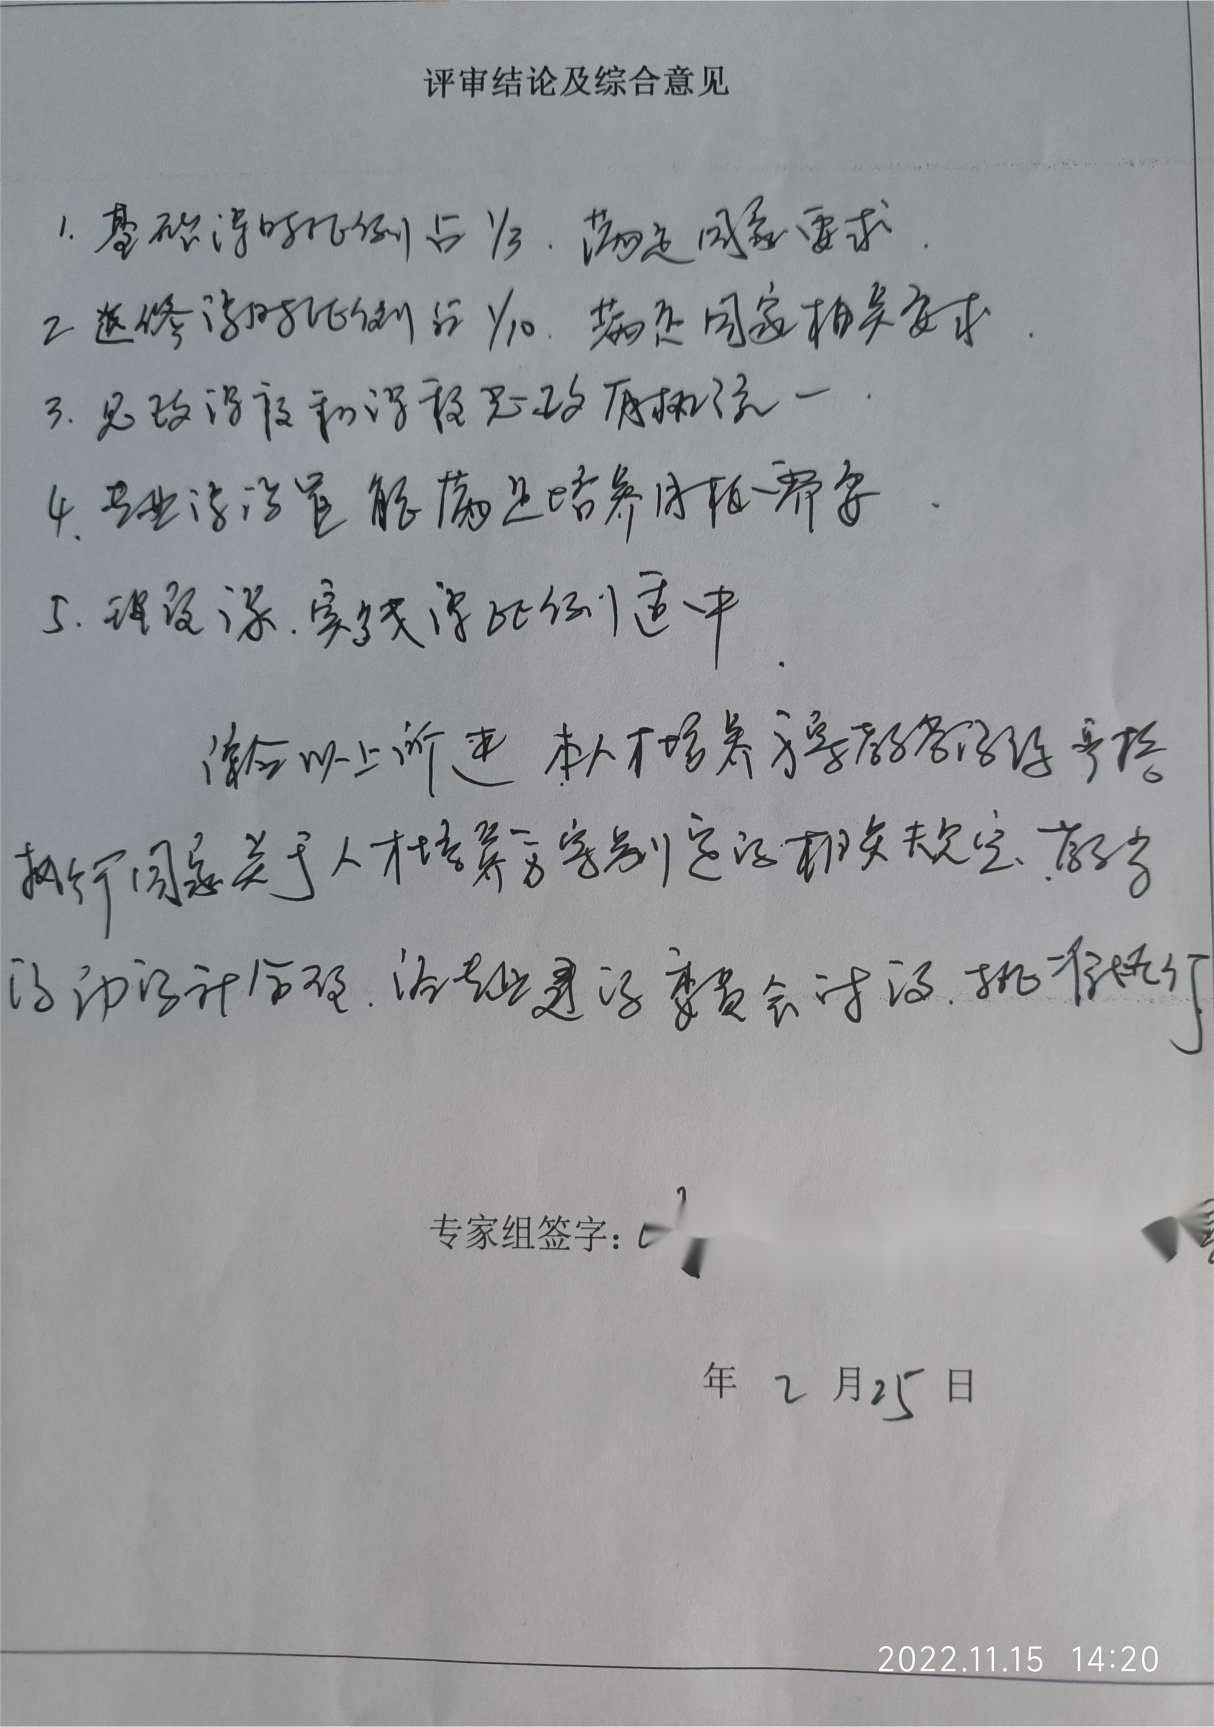 评审结论及综合意见
1. 基础课时比例占1/3. 满足国家要求.
2 选修课时比例占1/10. 满足国家相关要求.
3. 思政课程和课程思政有机统一.
4. 专业课设置能满足培养目标需要.
5. 理论课.实践课比例适中.
综合以上所述 本人才培养方案教学活动严格
执行国家关于人才培养方案制定的相关规定、教学
活动设计合理.经专业建设委员会讨论.批准执行
专家组签字:
年 2 月 25 日
2022.11.15 14:20